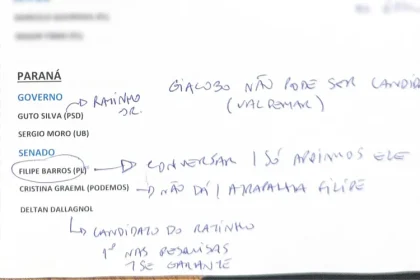 PARANÁ
GOVERNO
GUTO SILVA (PSD) → RATINHO JR.
GIACOBO NÃO PODE SER CANDIDA
(VALDEMAR)
SERGIO MORO (UB)
SENADO
FILIPE BARROS (PL) → CONVERSAR / SÓ APOIAMOS ELE
CRISTINA GRAEML (PODEMOS) → NÃO DÁ / ATRAPALHA FILIPE
DELTAN DALLAGNOL
→ CANDIDATO DO RATINHO
1º NAS PESQUISAS
SE GARANTE